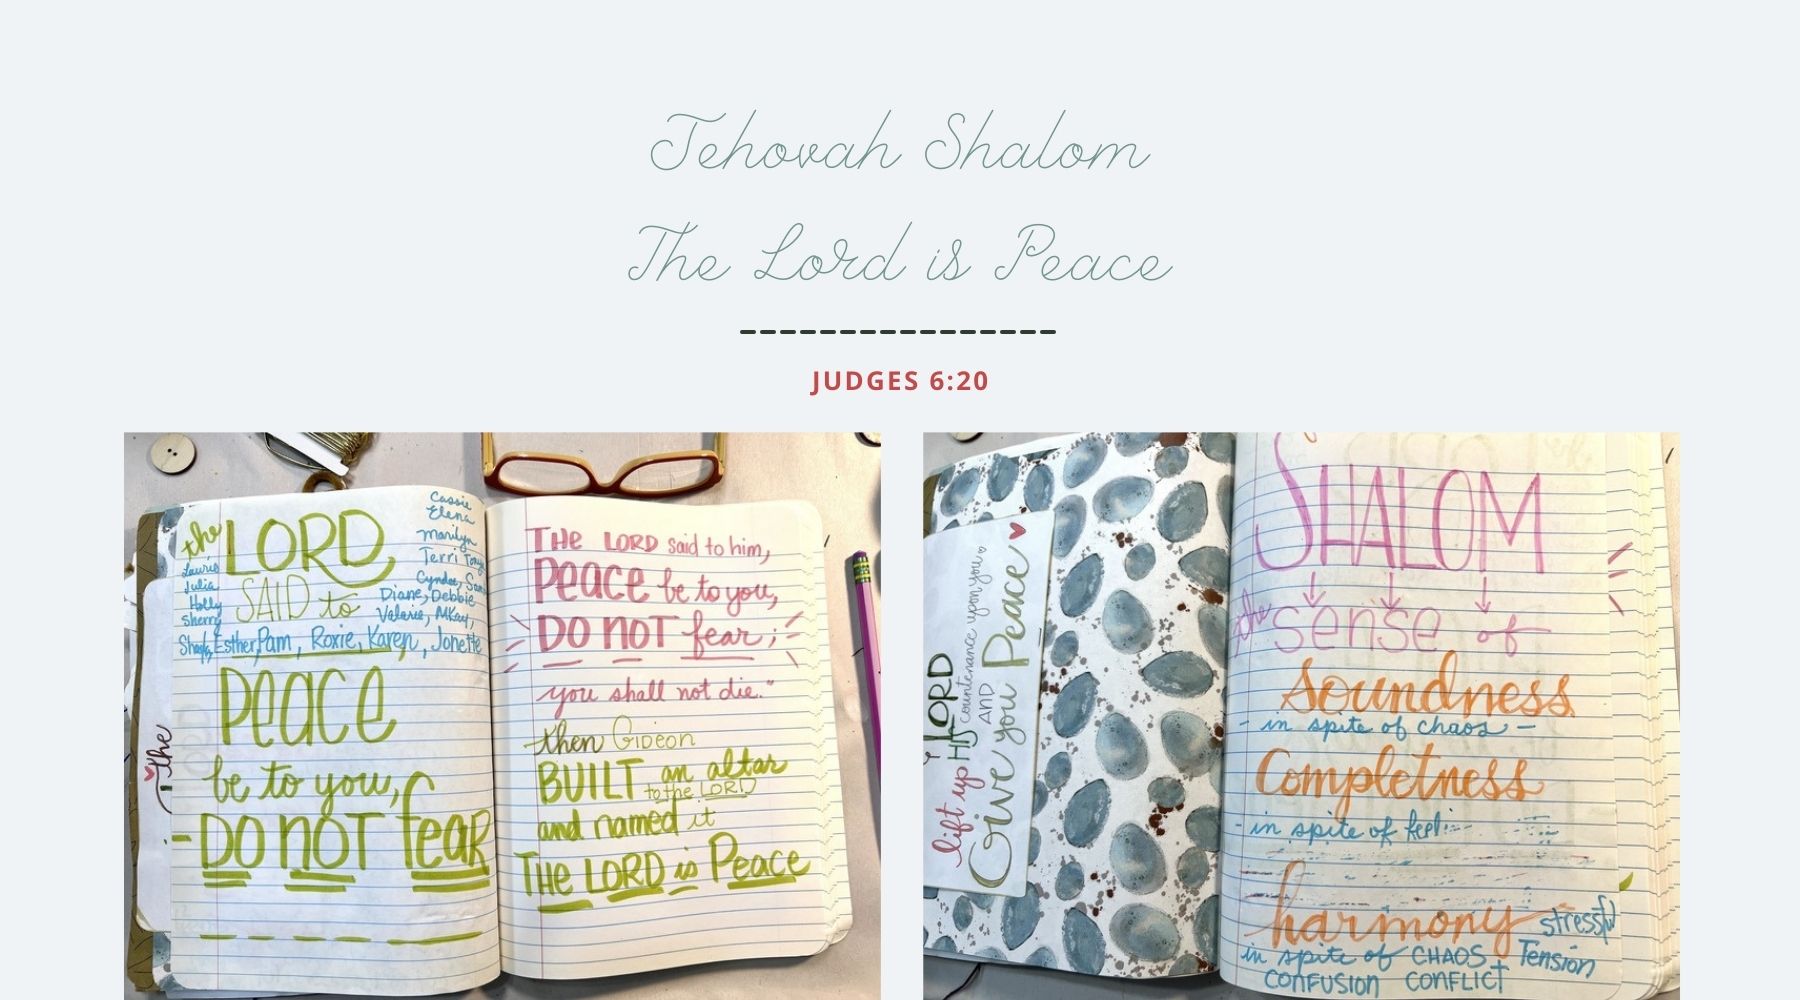 Jehovah Shalom
The Lord is Peace
JUDGES 6:20
the LORD
SAID to
Laurie
Julia
Holly
Sherry
Cassie
Elena
Marilyn
Terri
Cyndee,
Diane, Debbie
Valerie,
Esther, Pam, Roxie, Karen, Jonette
Peace
be to you,
-DO NOT fear
the
THE LORD said to him,
Peace be to you,
DO NOT fear;
you shall not die."
then Gideon
BUILT an altar
to the LORD
and named it
THE LORD is Peace
LORD
lift up HIS countenance upon you
AND
Give you Peace
SHALOM
the sense of
soundness
- in spite of chaos -
Completness
- in spite of
harmony stressful
in spite of CHAOS Tension
CONFUSION CONFLICT